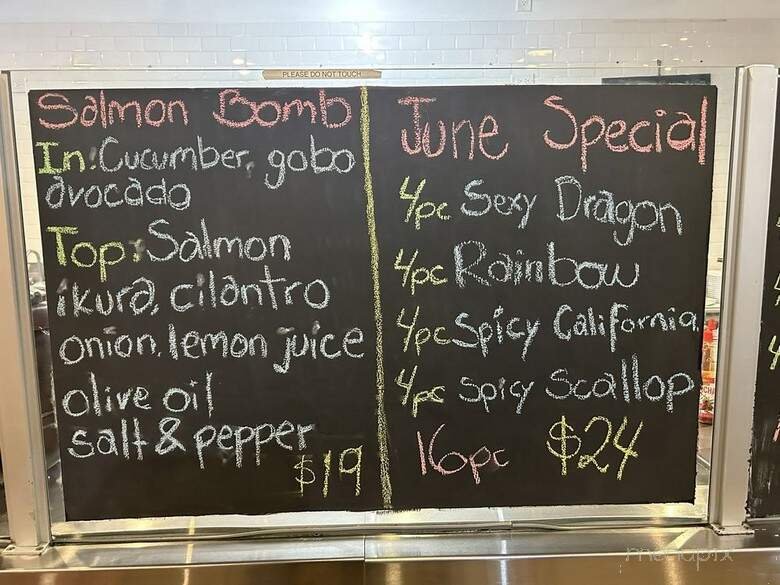 PLEASE DO NOT TOUCH
Salmon Bomb
In: Cucumber, gobo
avocado
Top: Salmon
ikura, cilantro
onion, lemon juice
olive oil
salt & pepper
$19
June Special
4pc Sexy Dragon
4pc Rainbow
4pc Spicy California
4pc Spicy Scallop
16pc $24